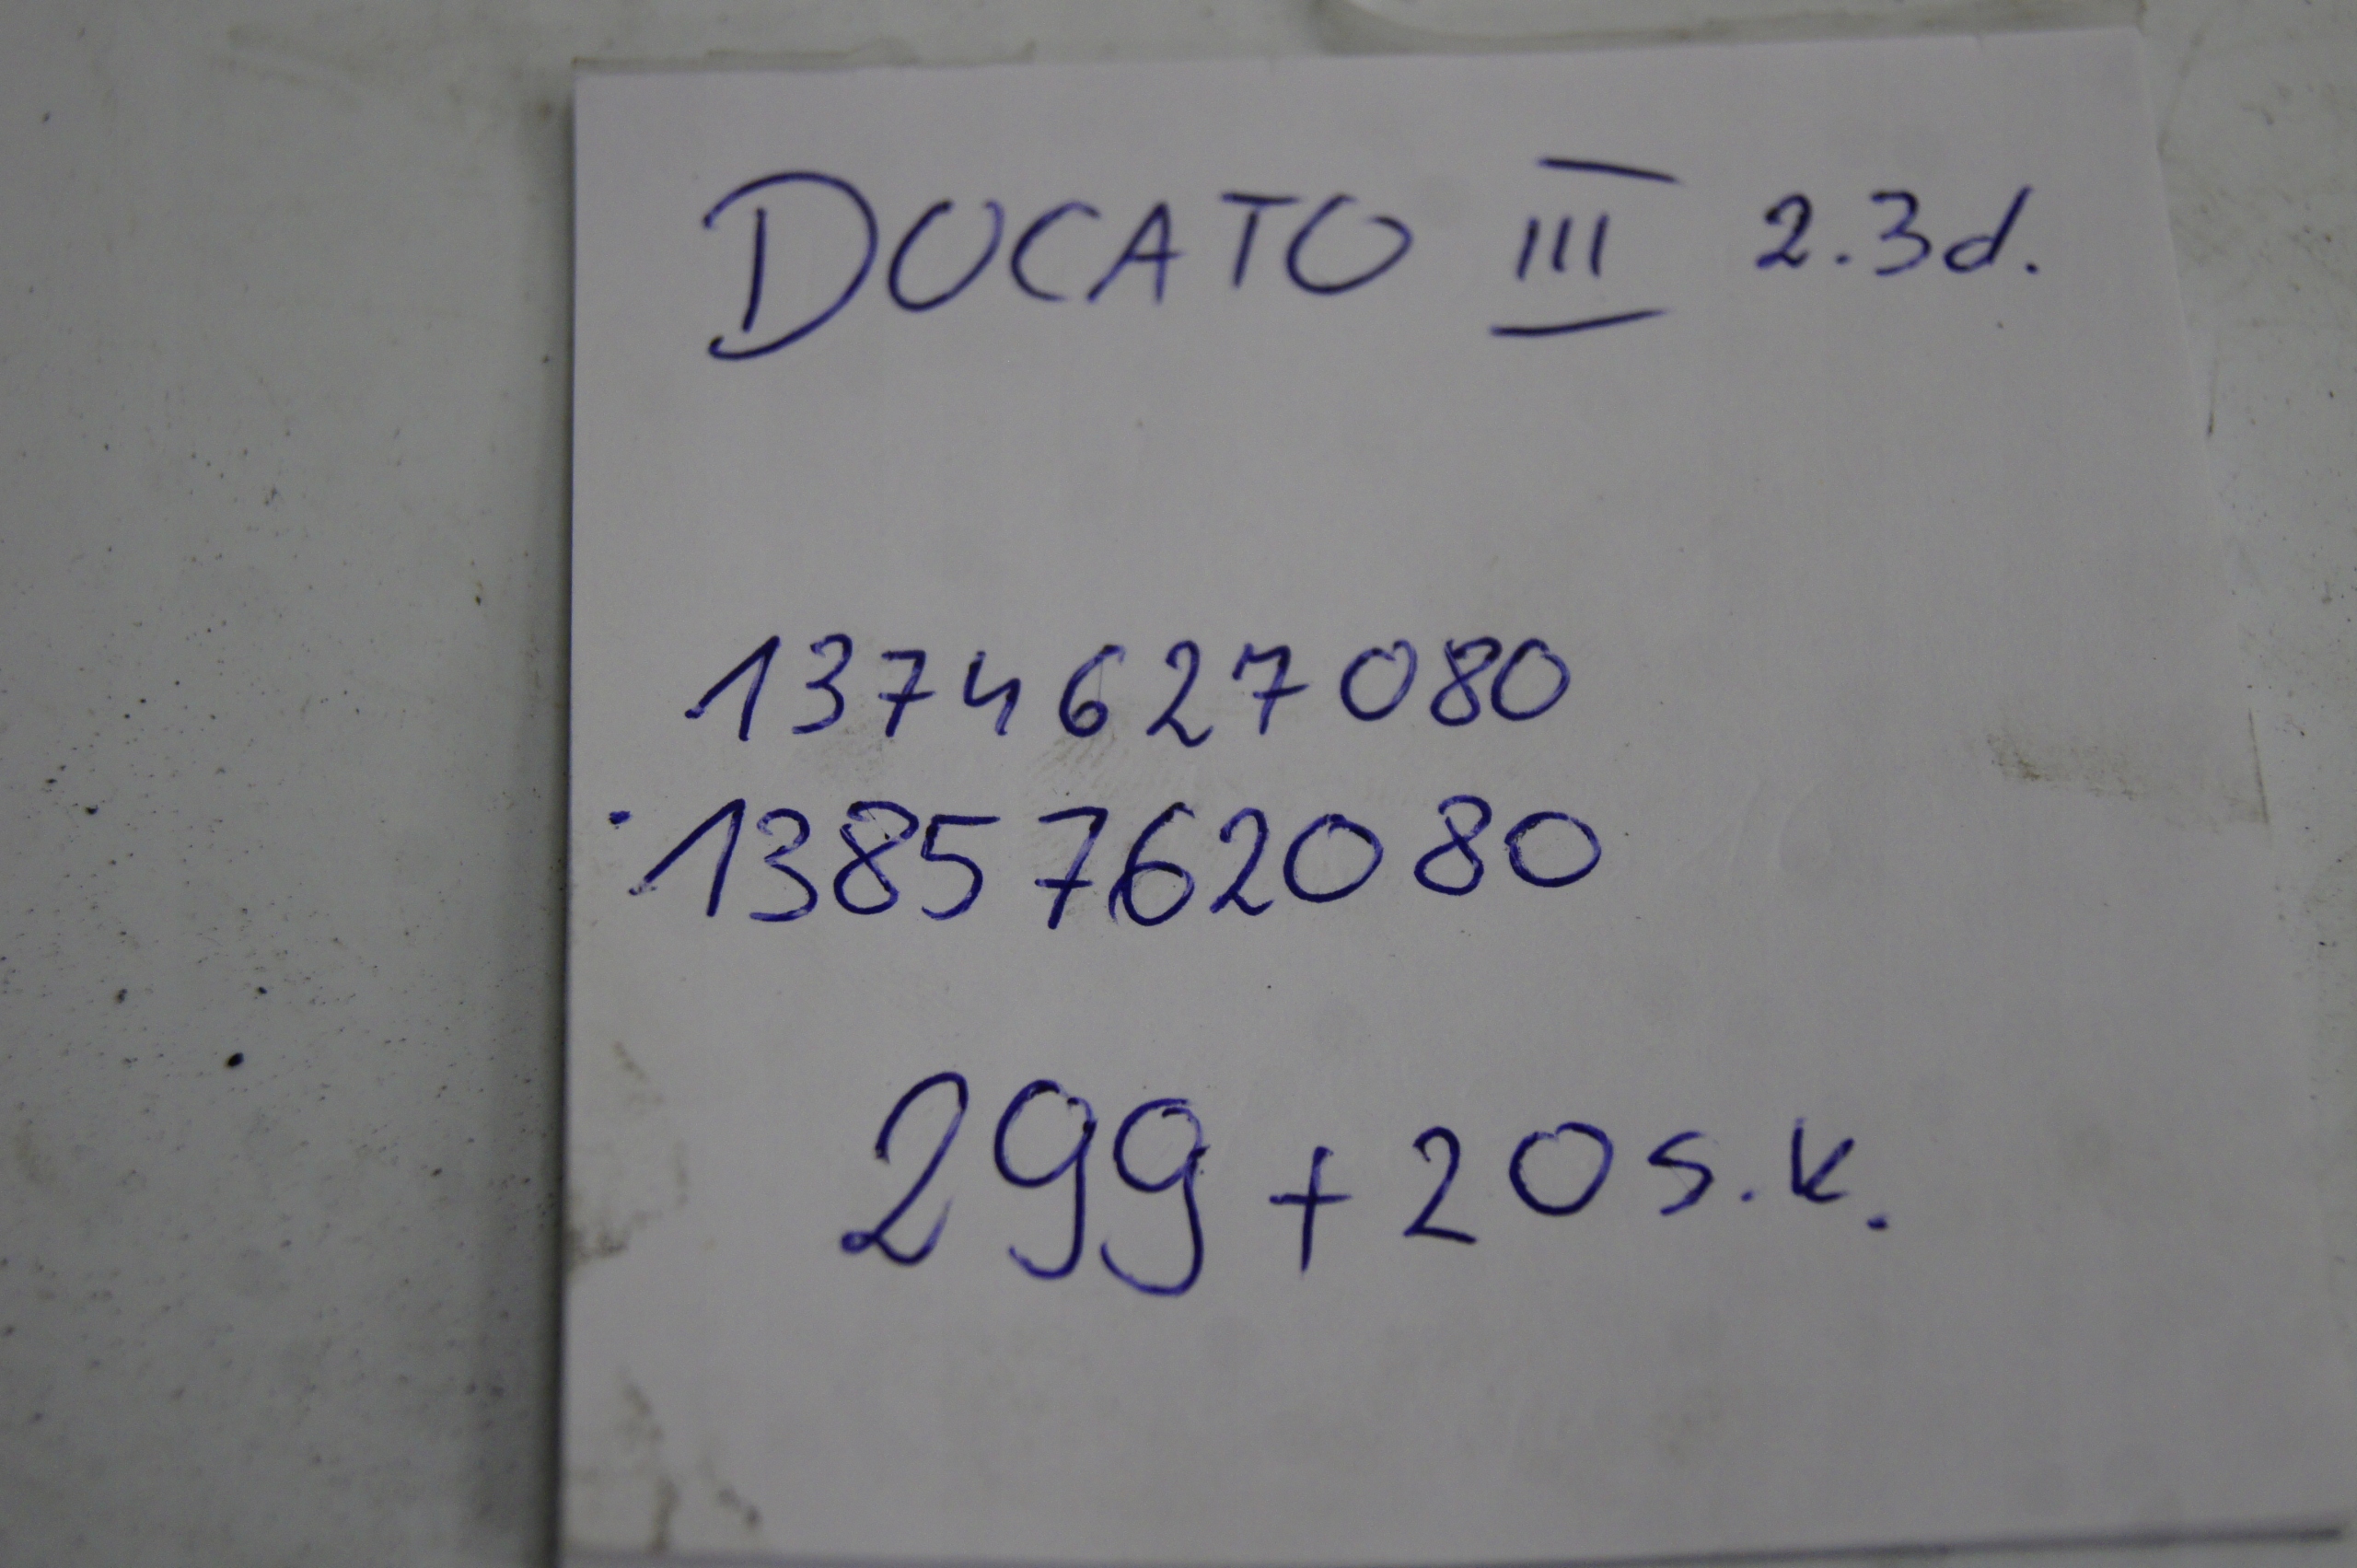 DUCATO III 2.3d.
1374627080
1385762080
299 + 20 s.k.